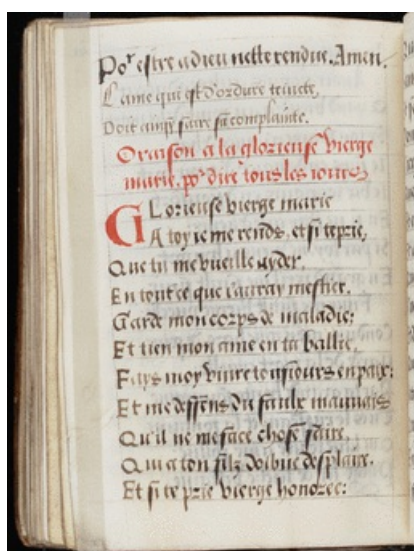 Por estre a dieu nette rendue. Amen.
L ame qui est d'ordure teincte,
Doit ainsi faire sa complainte.
Oraison a la glorieuse vierge
marie, por dire tous les iours,
Glorieuse vierge marie
A toy ie me rends, et si te prie,
Que tu me vueille ayder,
En tout ce que i'auray mestier.
Garde mon corps de maladie:
Et tien mon ame en ta baillie,
Fays moy vivre tousiours en paix:
Et me deffens du faulx mauvais
Qu'il ne me face chose faire,
Qui a ton filz doibve desplaire.
Et si te prie vierge honoree: